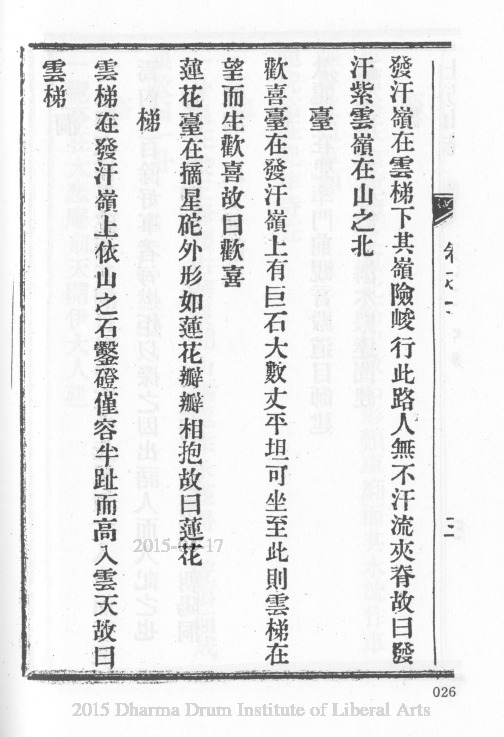 發汗嶺在雲梯下其嶺險峻行此路人無不汗流夾脊故曰發
汗紫雲嶺在山之北
臺
歡喜臺在發汗嶺上有巨石大數丈平坦可坐至此則雲梯在
望而生歡喜故曰歡喜
蓮花臺在摘星砣外形如蓮花瓣瓣相抱故曰蓮花
梯
雲梯在發汗嶺上依山之石鑿磴僅容半趾而高入雲天故曰
雲梯
卷之一
三
026
2015 Dharma Drum Institute of Liberal Arts